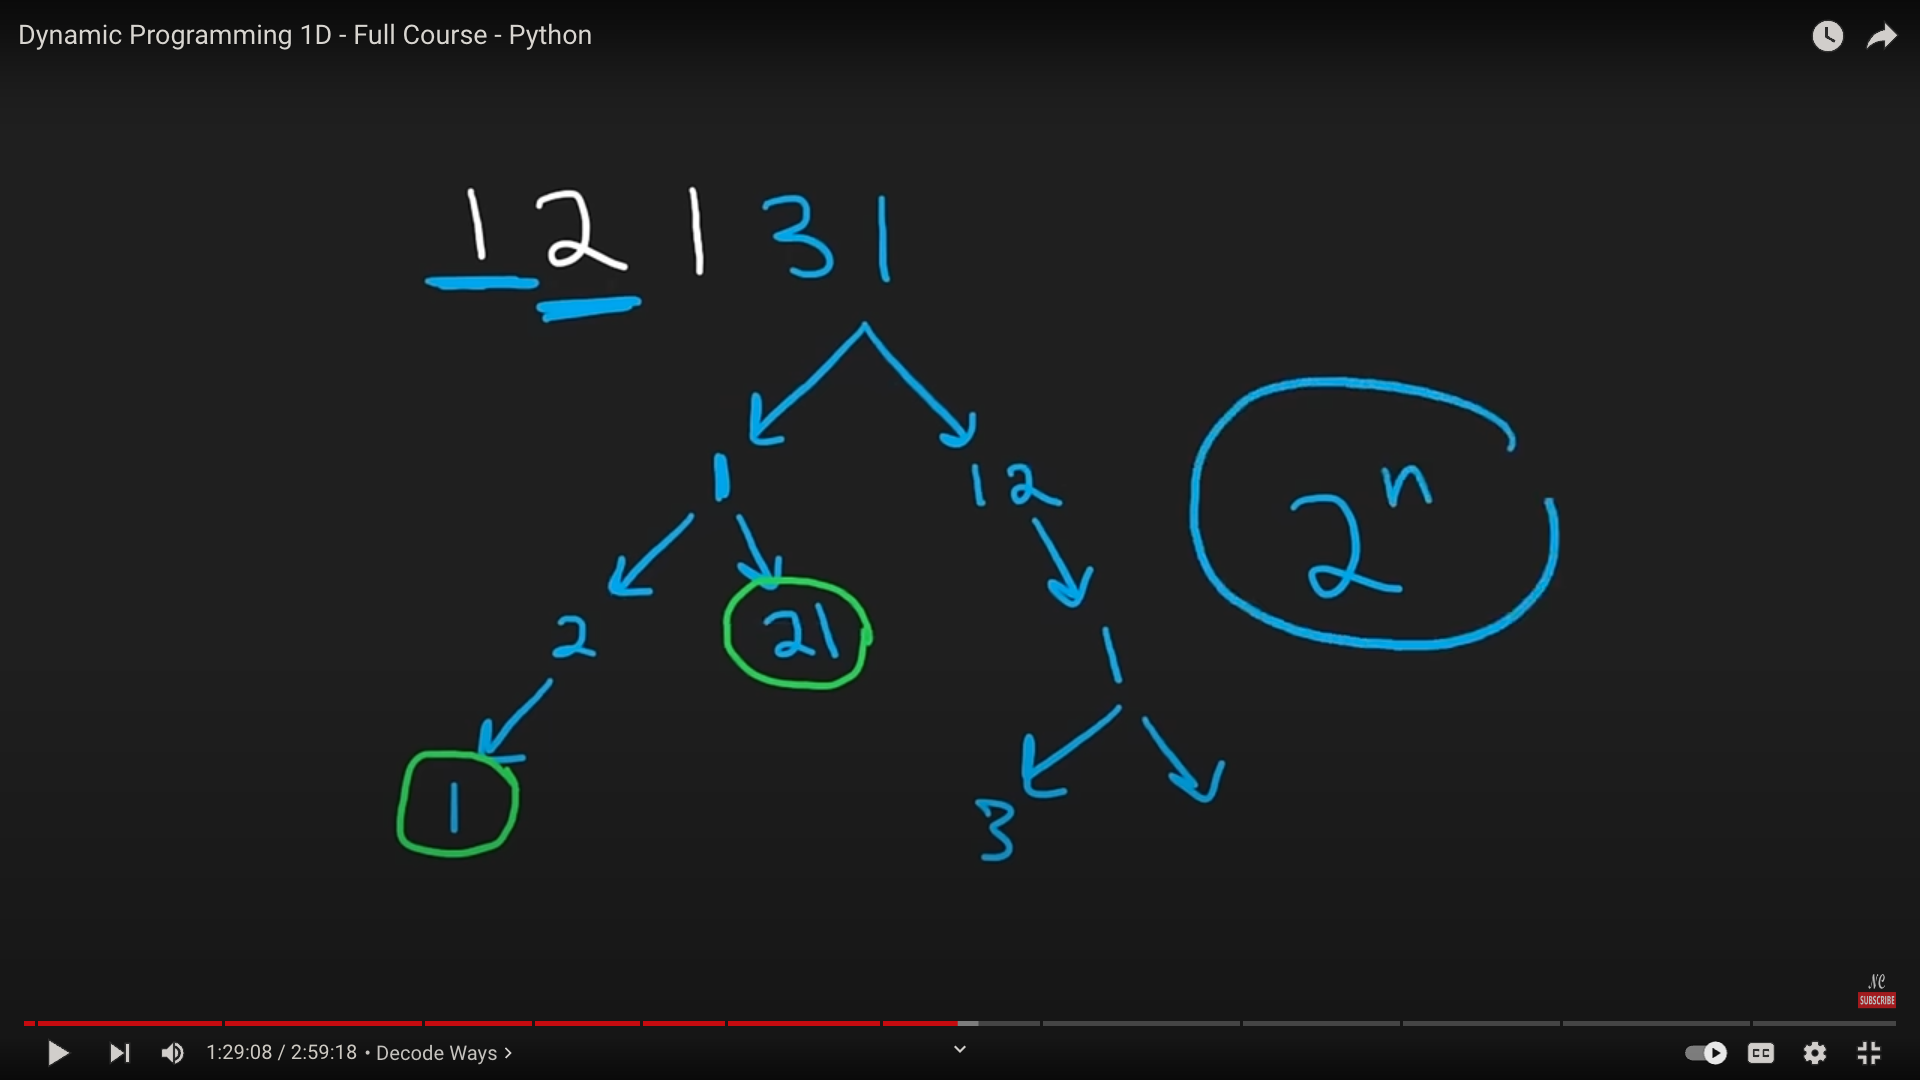 Dynamic Programming 1D - Full Course - Python
1 2 1 3 1
1
12
2ⁿ
2
21
1
1
3
NC
SUBSCRIBE
1:29:08 / 2:59:18 • Decode Ways >
CC